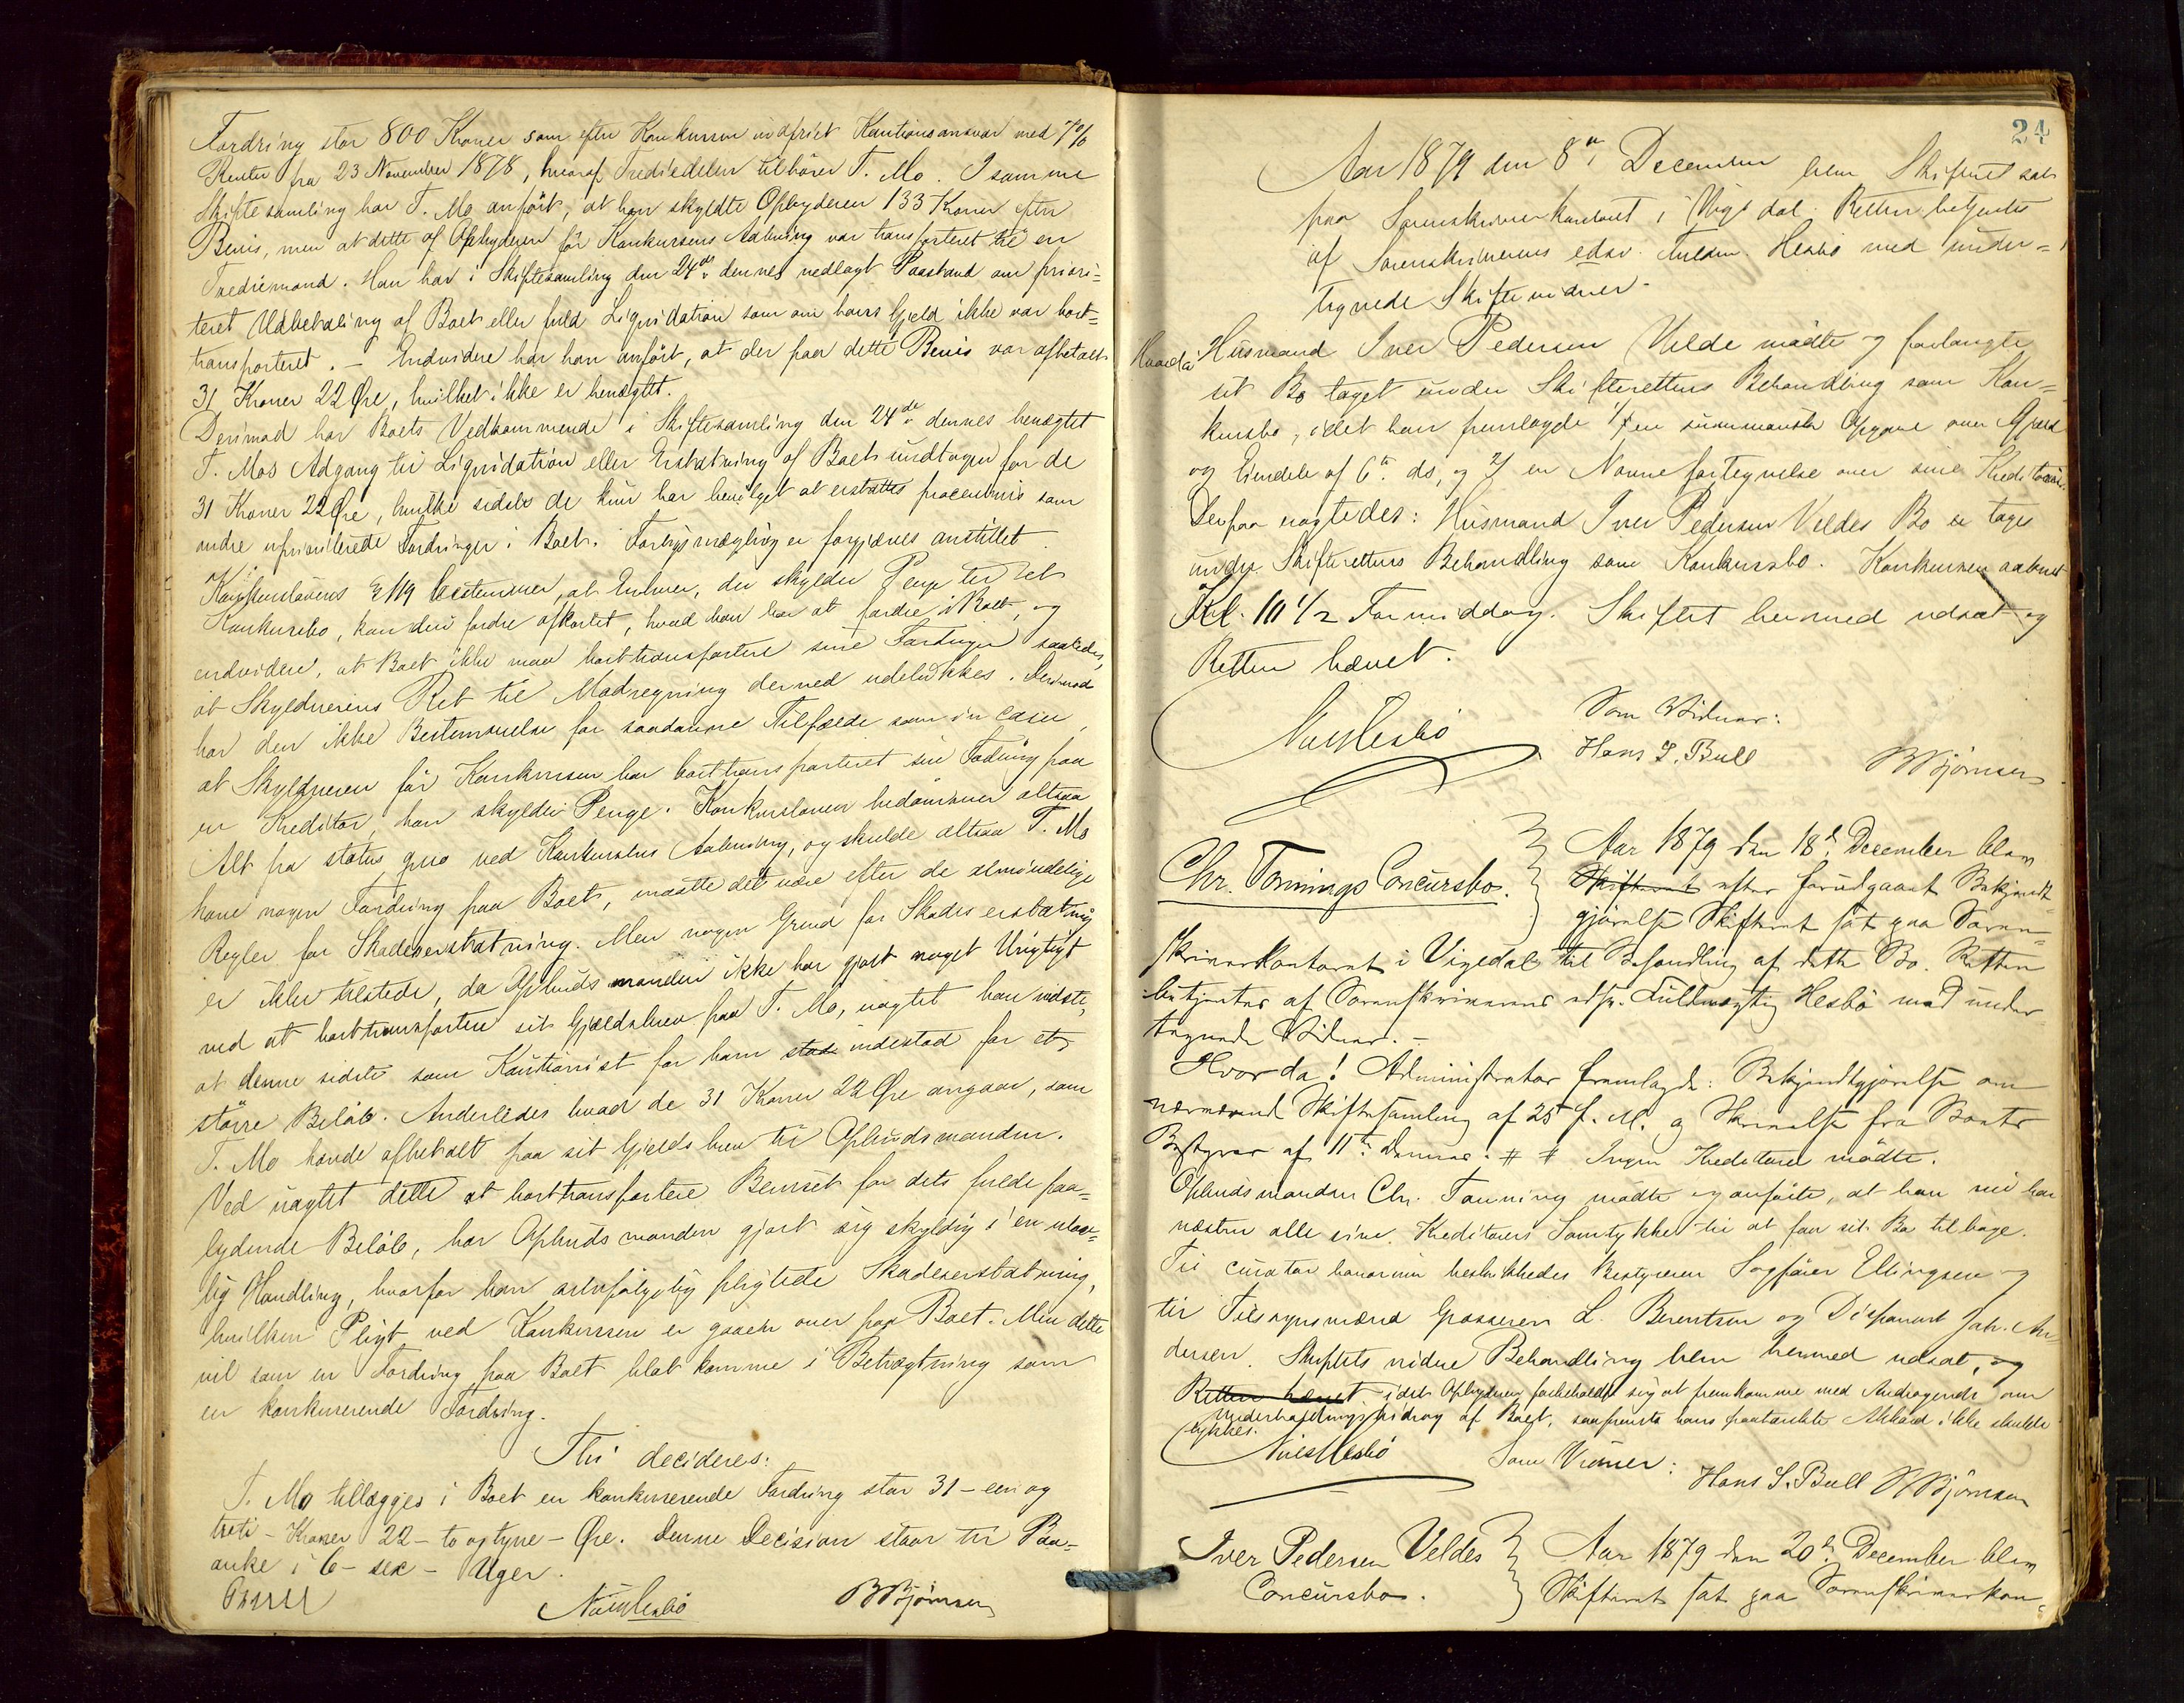 Fordring stor 800 Kroner som efter Konkursen indfriet Kautionsansvar med 7%
Renter fra 23 November 1878, hvoraf Trediedelen tilhører T. Mo. I samme
Skiftesamling har T. Mo anført, at han skyldte Opbyderen 133 Kroner efter
Bevis, men at dette af Opbyderen før Konkursens Aabning var transporteret til en
Trediemand. Han har i Skiftesamling den 24de dennes nedlagt Paastand om priori-
teret Udbetaling af Boet eller fuld Liqvidation som om hans Gjeld ikke var bort-
transporteret. – Endvidere har han anført, at der paa dette Bevis var afbetalt
31 Kroner 22 Øre, hvilket ikke er benægtet.
Derimod har Boets Vedkommende i Skiftesamling den 24de dennes benægtet
T. Mos Adgang til Liqvidation eller Erstatning af Boet undtagen for de
31 Kroner 22 Øre, hvilke sidste de kun har bevilget at erstattes procentvis som
andre uprioriterede Fordringer i Boet. Forligsmægling er forgjæves anstillet.
Konkurslovens § 119 bestemmer, at Enhver, der skylder Penge til et
Konkursbo, kan deri fordre afkortet, hvad han har at fordre i Boet, og
endvidere, at Boet ikke maa borttransportere sine Fordringer saaledes,
at Skyldnerens Ret til Modregning derved udelukkes. Derimod
har den ikke Bestemmelse for saadanne Tilfælde som in casu,
at Skyldneren før Konkursen har borttransporteret sin Fodring paa
en Kreditor, han skylder Penge. Konkursloven bedømmer altsaa
Alt fra status quo ved Konkursens Aabning, og skulde altsaa T. Mo
have nogen Fordring paa Boet, maatte det være efter de almindelige
Regler for Skadeserstatning. Men nogen Grund for Skadeserstatning
er ikke tilstede, da Opbudsmanden ikke har gjort noget Urigtigt
ved at borttransportere sit Gjældsbrev paa T. Mo, uagtet han vidste,
at denne sidste som Kautionist for ham stod indestod for et
større Beløb. Anderledes hvad de 31 Kroner 22 Øre angaar, som
T. Mo havde afbetalt paa sit Gjelds brev til Opbudsmanden.
Ved uagtet dette at borttransportere Beviset for dets fulde paa-
lydende Beløb, har Opbudsmanden gjort sig skyldig i en ulov-
lig Handling, hvorfor han selvfølgelig pligtede Skadeserstatning,
hvilken Pligt ved Konkursen er gaaet over paa Boet. Men dette
vil som en Fordring paa Boet blot komme i Betragtning som
en konkurerende Fordring.
Thi decideres:
T. Mo tillægges i Boet en konkurerende Fordring stor 31 – een og
treti – Kroner 22 – to og tyve – Øre. Denne Decision staar til Paa-
anke i 6 – sex – Uger.
Nils Hesbø BBjørnsen
24
Aar 1879 den 8de December blev Skifteret sat
paa Sorenskriverkontoret i Vigedal. Retten betjentes
af Sorenskriverens edsv. Fuldm. Hesbø med under-
tegnede Skiftevidner.
Hvorda: Husmand Iver Pedersen Velde mødte og forlangte
sit Bo taget under Skifterettens Behandling som Kon-
kursbo, idet han fremlagde 1/ en summarisk Opgave over Gjeld
og Eiendele af 6te ds, og 2/ en Navnefortegnelse over sine Kreditorer.
Derpaa eragtedes: Husmand Iver Pedersen Veldes Bo er tages
under Skifterettens Behandling som Konkursbo. Konkursen aabnet
Kl. 10 1/2 Formiddag. Skiftet hermed udsat og
Retten hævet.
Nils Hesbø
Som Vidner:
Hans S. Bull BBjørnsen
Chr. Tonnings Concursbo.
Aar 1879 den 18de December blev
Skifteret efter forudgaaet Bekjendt-
gjørelse Skifteret sat paa Soren-
skriverkontoret i Vigedal til Behandling af dette Bo. Retten
betjentes af Sorenskriverens edsv. Fuldmægtig Hesbø med under-
tegnede Vidner. –
Hvorda! Administrator fremlagde: Bekjendtgjørelse om
nærværende Skiftesamling af 25 f. M. og Skrivelse fra Boets
Bestyrer af 11te Dennes. # # Ingen Kreditorer mødte.
Opbudsmanden Chr. Tonning mødte og anførte, at han nu har
næsten alle sine Kreditorers Samtykke til at faa sit Bo tilbage.
Til curator bonorum beskikkedes Bestyreren Sagfører Ellingsen og
til Tilsynsmænd Grosserer L. Berentsen og Disponent Joh. An-
dersen. Skiftets videre Behandling blev hermed udsat, og
Retten hævet idet Opbyderen forbeholdt sig at fremkomme med Andragende om
Underholdningsbidrag af Boet, saafremt hans paatænkte Akkord ikke skulde
lykkes.
Nils Hesbø Som Vidner:
Hans S. Bull BBjørnsen
Iver Pedersen Veldes
Concursbo.
Aar 1879 den 20de December blev
Skifteret sat paa Sorenskriverkon-